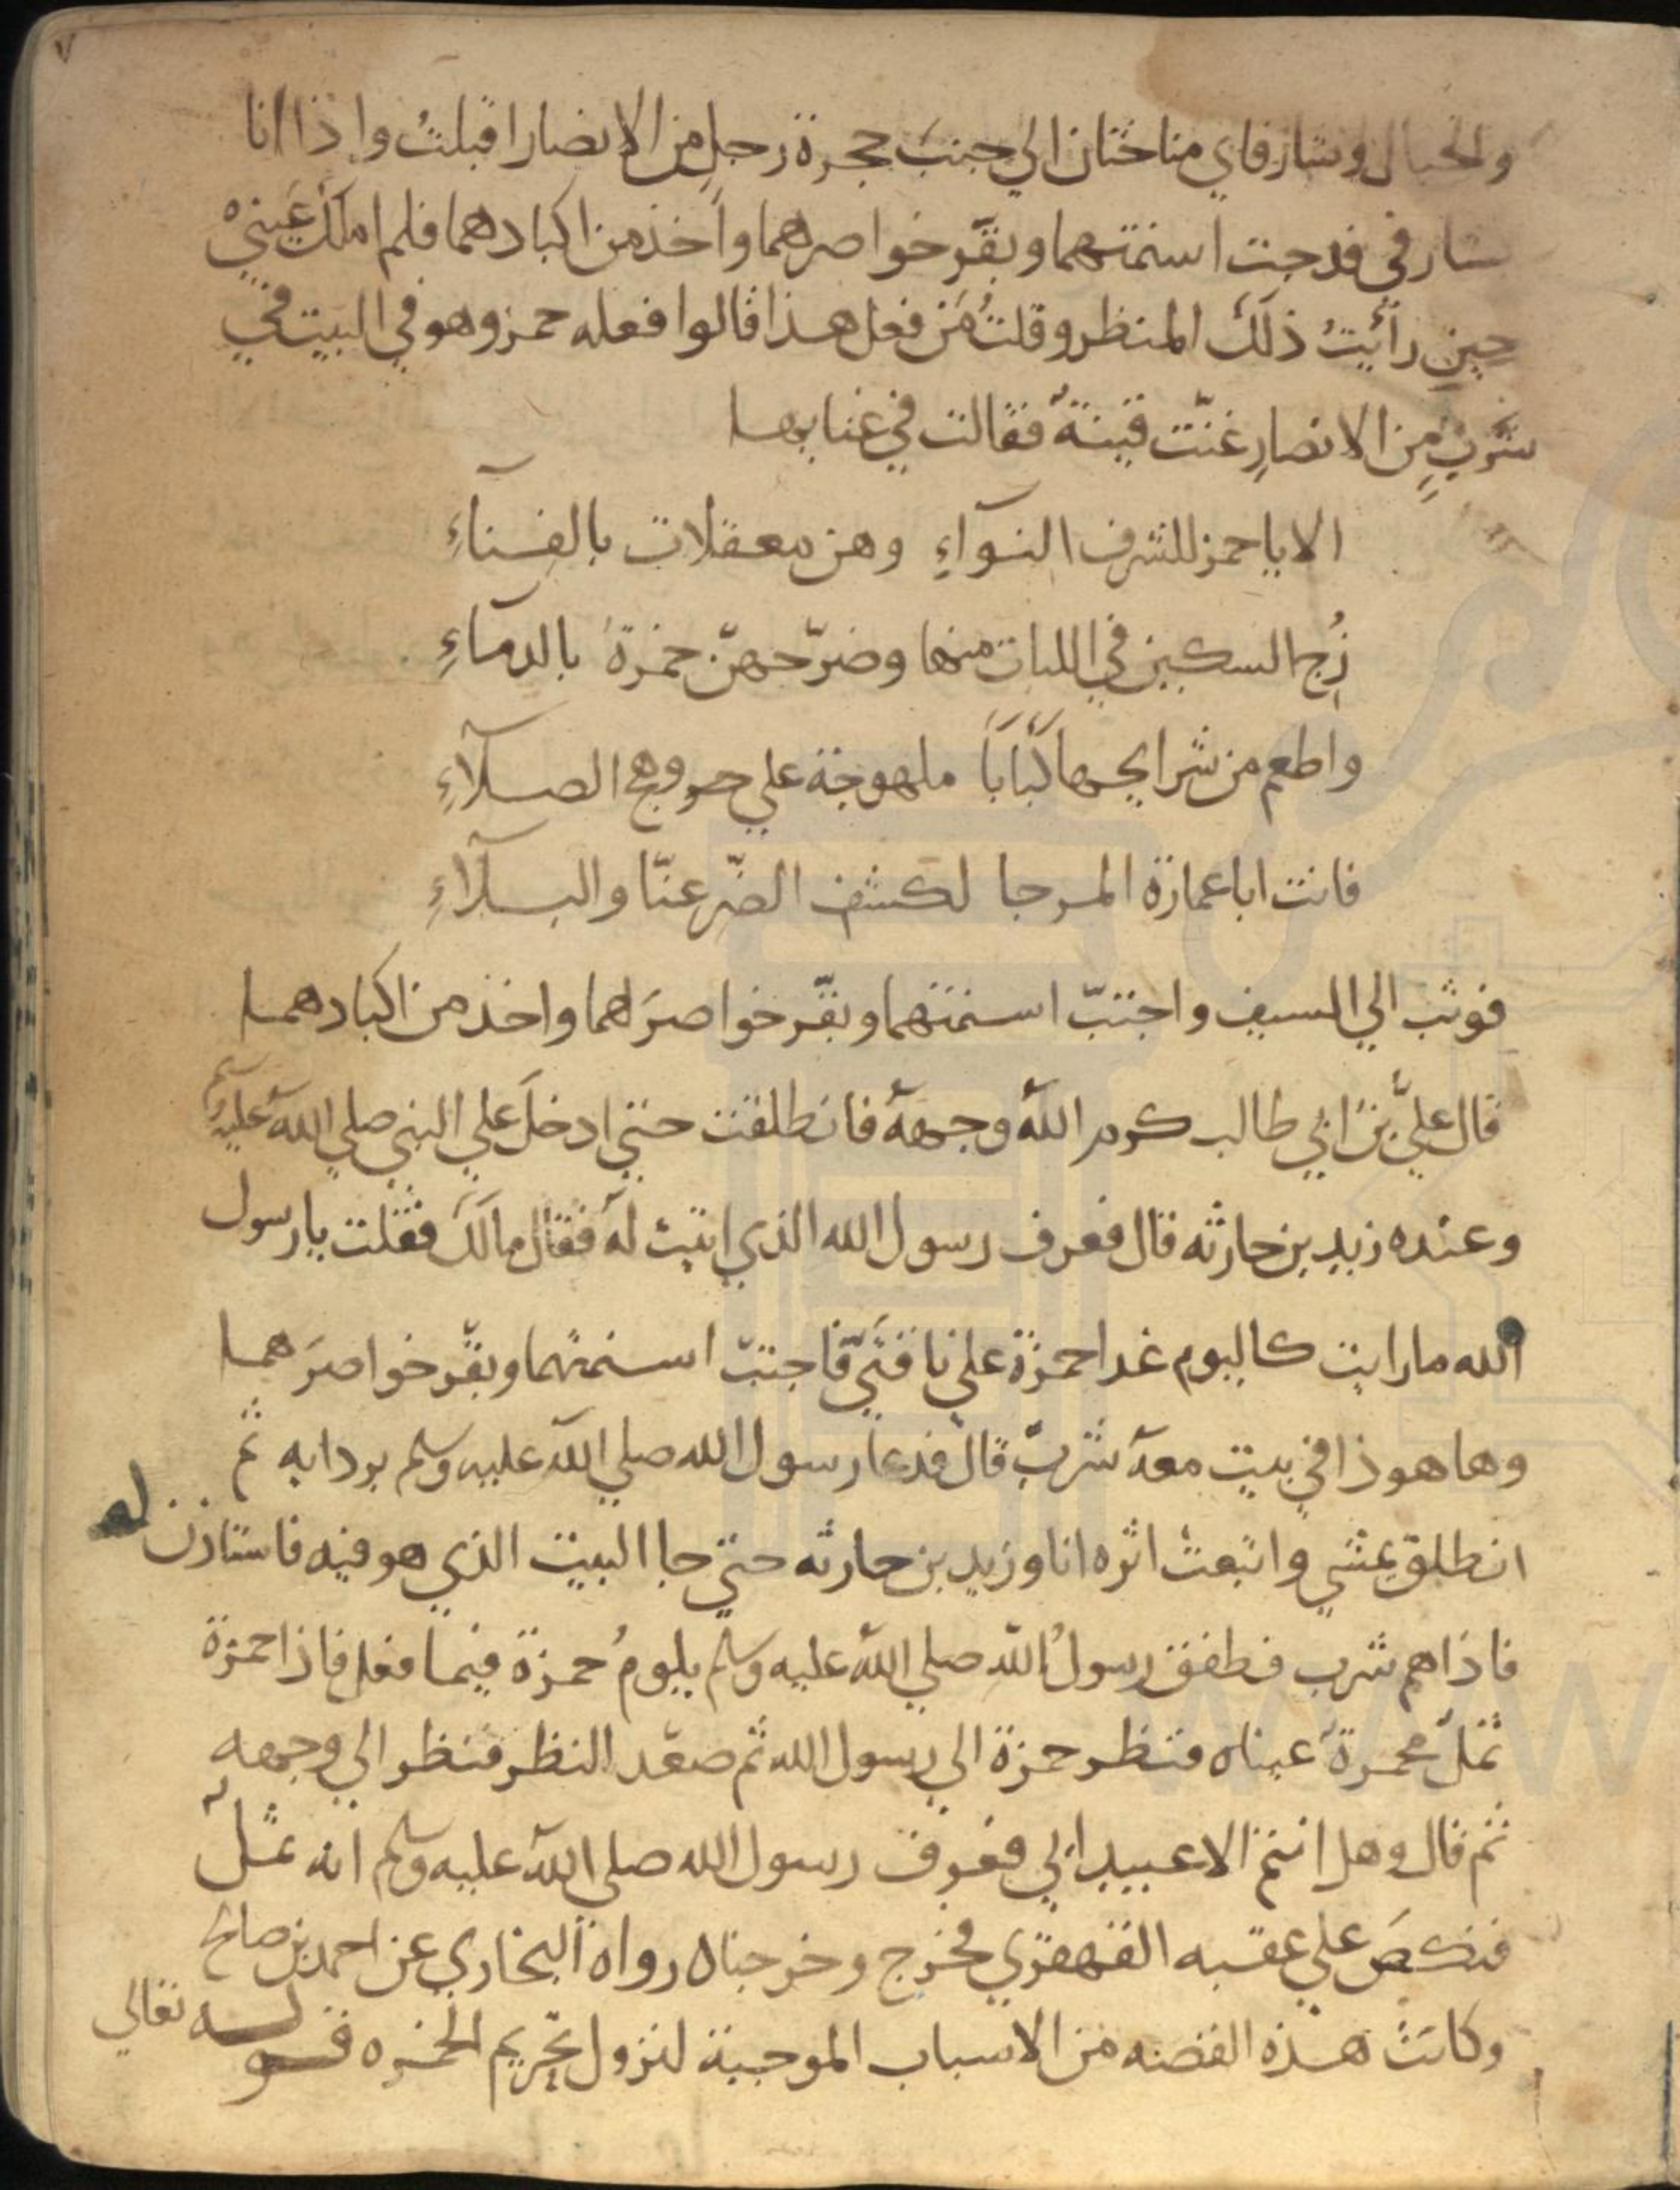 ٧
والحبال وشارفاي مناختان الي جنب حجرة رجل من الانصار اقبلت واذا انا
بشارفي قد جبت اسنمتهما وبقّر خواصرهما واخذ من اكبادهما فلم املك عيني
حين رأيت ذلك المنظر وقلت مَن فعل هذا قالوا فعله حمز وهو في البيت في
شَرْبٍ من الانصارِ غنّت قينةٌ فقالت في غنايها
الا يا حمز للشرف النوآءِ وهن معقلات بالفنآءِ
زُج السكين في اللبات منها وضرّجهنّ حمزة بالدمآءِ
واطعم من شرايحها كَبَابَاً ملهوجة علي وهج الصلآءِ
فانت ابا عمارة المرجا لكشف الضّر عنّا والبلآءِ
فوثب الي السيف واجتبّ اسنمتهما وبقّر خواصرَهما واخذ من اكبادهما
قال عليّ بن ابي طالب كرم اللّه وجهه فانطلقت حتي ادخلَ علي النبي صلي اللّه عليه وسلم
وعنده زيد بن حارثه قال فعرف رسول الله الذي اتيت له فقال مالَك فقلت يا رسول
الله ما رايت كاليوم غدا حمزة علي ناقتَيّ فاجتبّ اسنمتهما وبقّر خواصرَهما
وها هوذا في بيت معه شَرْبٌ قال فدعا رسول الله صلي اللّه عليه وسلم بردايه ثم
انطلق يمشي واتبعت اثره انا وزيد بن حارثه حتي جا البيت الذي هو فيه فاستاذن له
فاذا هم شرب فطفق رسولُ اللّه صلي اللّه عليه وسلم يلومُ حمزة فيما فعل فاذا حمزة
ثملٌ محمرةٌ عيناه فنظر حمزة الي رسول الله ثم صعّد النظر فنظر الي وجهه
ثم قال وهل انتم الا عبيد ابي فعرف رسول الله صلي اللّه عليه وسلم انه ثملٌ
فنكصَ علي عقبه القهقري فخرج وخرجناه رواه البخاري عن احمد بن صالح
وكانت هذه القصه من الاسباب الموجبة لنزول تحريم الخمره قوله تعالي